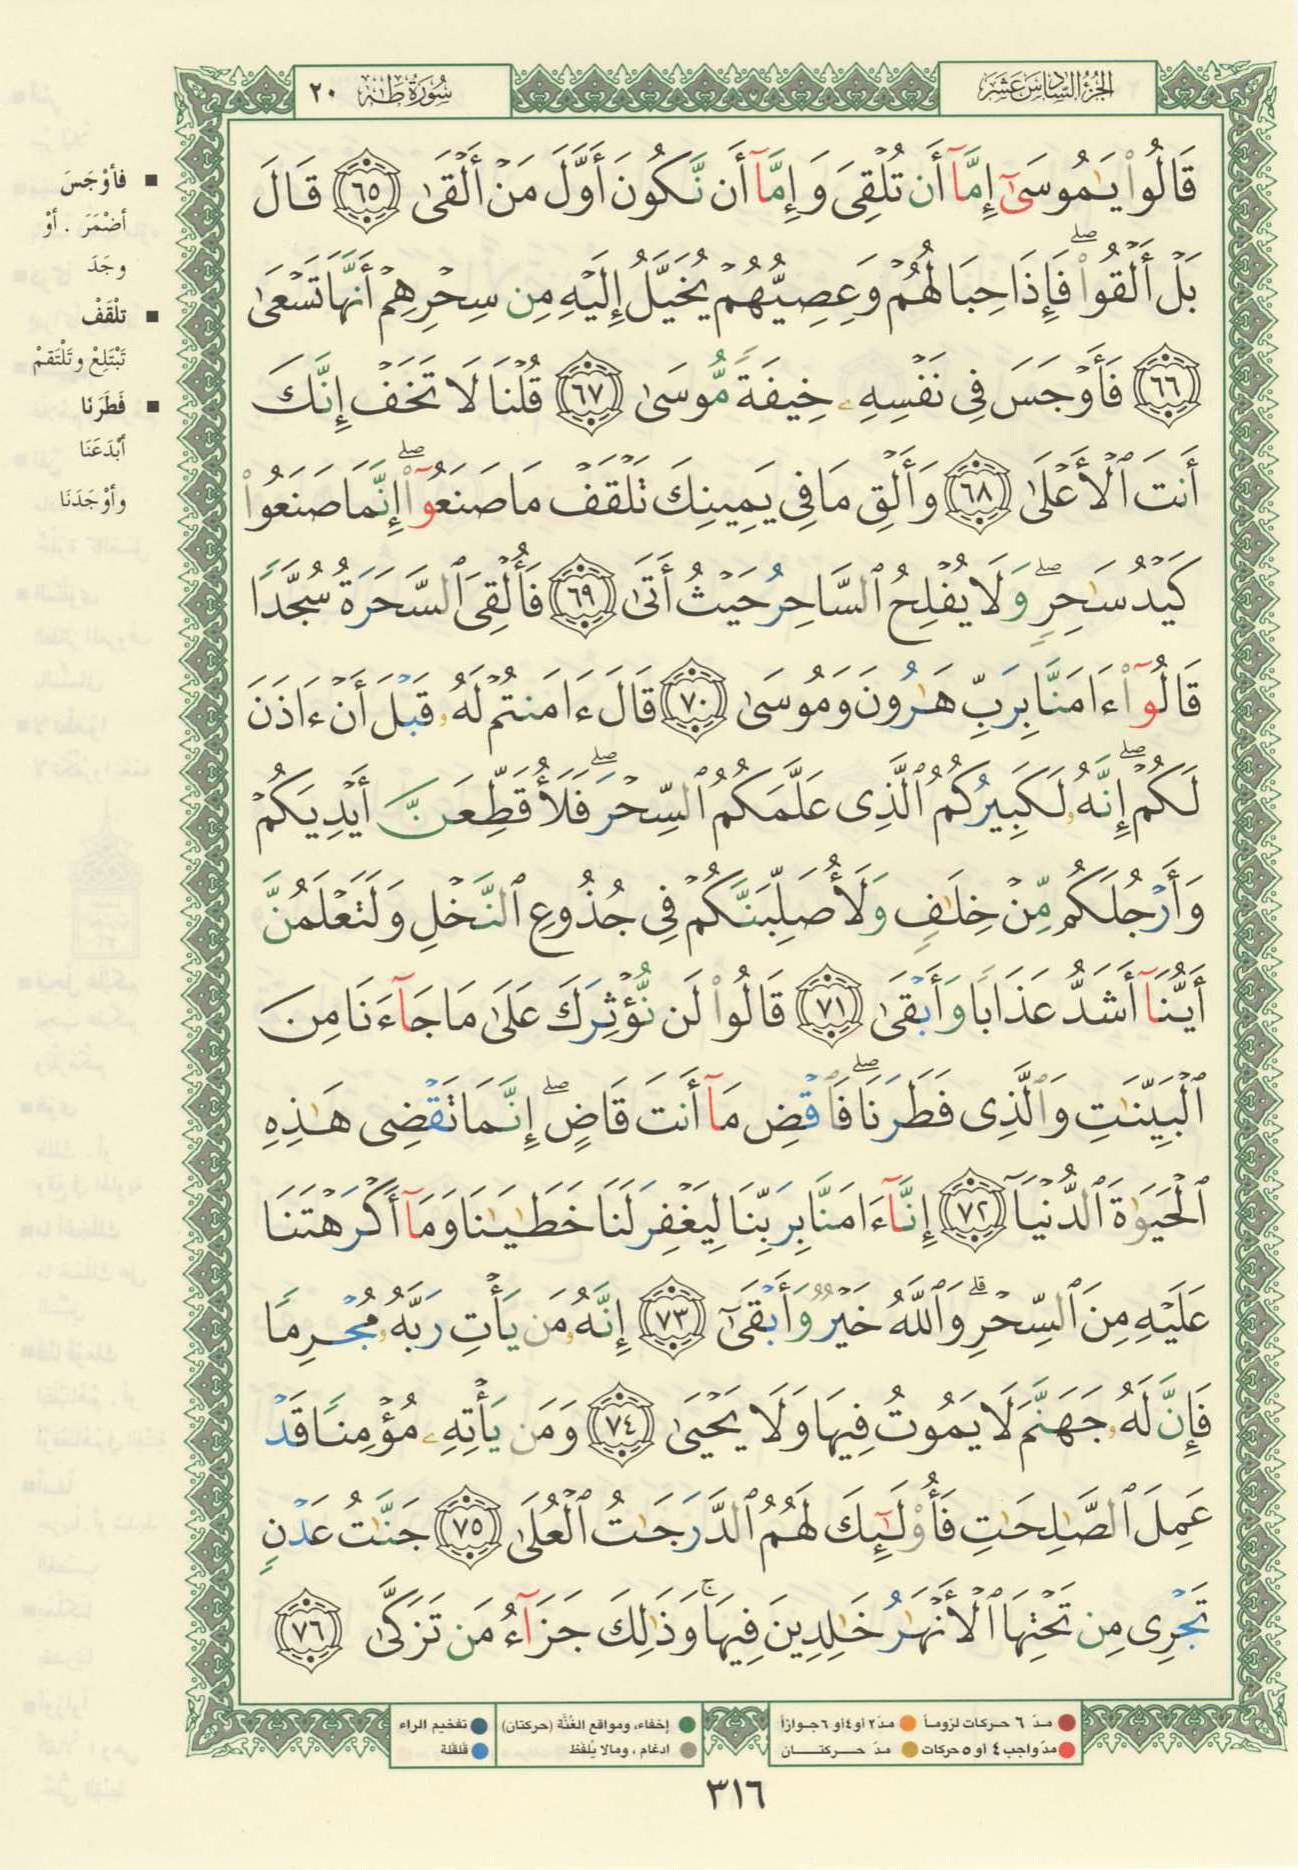 الجزء السادس عشر
سورة طه ٢٠
قَالُوا۟ يَـٰمُوسَىٰٓ إِمَّآ أَن تُلْقِىَ وَإِمَّآ أَن نَّكُونَ أَوَّلَ مَنْ أَلْقَىٰ ٦٥ قَالَ
بَلْ أَلْقُوا۟ ۖ فَإِذَا حِبَالُهُمْ وَعِصِيُّهُمْ يُخَيَّلُ إِلَيْهِ مِن سِحْرِهِمْ أَنَّهَا تَسْعَىٰ
٦٦ فَأَوْجَسَ فِى نَفْسِهِۦ خِيفَةً مُّوسَىٰ ٦٧ قُلْنَا لَا تَخَفْ إِنَّكَ
أَنتَ ٱلْأَعْلَىٰ ٦٨ وَأَلْقِ مَا فِى يَمِينِكَ تَلْقَفْ مَا صَنَعُوٓا۟ ۖ إِنَّمَا صَنَعُوا۟
كَيْدُ سَـٰحِرٍ ۖ وَلَا يُفْلِحُ ٱلسَّاحِرُ حَيْثُ أَتَىٰ ٦٩ فَأُلْقِىَ ٱلسَّحَرَةُ سُجَّدًا
قَالُوٓا۟ ءَامَنَّا بِرَبِّ هَـٰرُونَ وَمُوسَىٰ ٧٠ قَالَ ءَامَنتُمْ لَهُۥ قَبْلَ أَنْ ءَاذَنَ
لَكُمْ ۖ إِنَّهُۥ لَكَبِيرُكُمُ ٱلَّذِى عَلَّمَكُمُ ٱلسِّحْرَ ۖ فَلَأُقَطِّعَنَّ أَيْدِيَكُمْ
وَأَرْجُلَكُم مِّنْ خِلَـٰفٍ وَلَأُصَلِّبَنَّكُمْ فِى جُذُوعِ ٱلنَّخْلِ وَلَتَعْلَمُنَّ
أَيُّنَآ أَشَدُّ عَذَابًا وَأَبْقَىٰ ٧١ قَالُوا۟ لَن نُّؤْثِرَكَ عَلَىٰ مَا جَآءَنَا مِنَ
ٱلْبَيِّنَـٰتِ وَٱلَّذِى فَطَرَنَا ۖ فَٱقْضِ مَآ أَنتَ قَاضٍ ۖ إِنَّمَا تَقْضِى هَـٰذِهِ
ٱلْحَيَوٰةَ ٱلدُّنْيَآ ٧٢ إِنَّآ ءَامَنَّا بِرَبِّنَا لِيَغْفِرَ لَنَا خَطَـٰيَـٰنَا وَمَآ أَكْرَهْتَنَا
عَلَيْهِ مِنَ ٱلسِّحْرِ ۗ وَٱللَّهُ خَيْرٌ وَأَبْقَىٰٓ ٧٣ إِنَّهُۥ مَن يَأْتِ رَبَّهُۥ مُجْرِمًا
فَإِنَّ لَهُۥ جَهَنَّمَ لَا يَمُوتُ فِيهَا وَلَا يَحْيَىٰ ٧٤ وَمَن يَأْتِهِۦ مُؤْمِنًا قَدْ
عَمِلَ ٱلصَّـٰلِحَـٰتِ فَأُو۟لَـٰٓئِكَ لَهُمُ ٱلدَّرَجَـٰتُ ٱلْعُلَىٰ ٧٥ جَنَّـٰتُ عَدْنٍ
تَجْرِى مِن تَحْتِهَا ٱلْأَنْهَـٰرُ خَـٰلِدِينَ فِيهَا ۚ وَذَٰلِكَ جَزَآءُ مَن تَزَكَّىٰ ٧٦
■ فأوْجَسَ
أضْمَرَ . أوْ
وجَدَ
■ تلْقَفْ
تَبْتَلِعْ وتَلْتَقمْ
■ فَطَرَنَا
أبْدَعَنَا
وأوْجَدَنَا
مدّ ٦ حركات لزوماً ● مدّ ٢ أو ٤ أو ٦ جوازاً
مدّ واجب ٤ أو ٥ حركات ● مدّ حركتان
إخفاء، ومواقع الغُنَّة (حركتان) ● تفخيم الراء
ادغام ، ومالا يُلفَظ ● قلقلة
٣١٦